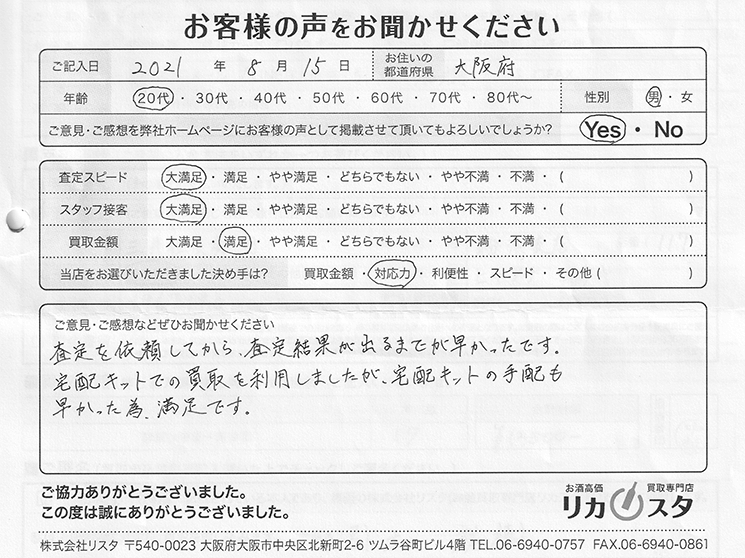 お客様の声をお聞かせください
ご記入日 2021 年 8 月 15 日 お住いの都道府県 大阪府
年齢 20代・30代・40代・50代・60代・70代・80代〜 性別 男・女
ご意見・ご感想を弊社ホームページにお客様の声として掲載させて頂いてもよろしいでしょうか? Yes・No
査定スピード 大満足・満足・やや満足・どちらでもない・やや不満・不満・( )
スタッフ接客 大満足・満足・やや満足・どちらでもない・やや不満・不満・( )
買取金額 大満足・満足・やや満足・どちらでもない・やや不満・不満・( )
当店をお選びいただきました決め手は? 買取金額・対応力・利便性・スピード・その他( )
ご意見・ご感想などぜひお聞かせください
査定を依頼してから、査定結果が出るまでが早かったです。
宅配キットでの買取を利用しましたが、宅配キットの手配も
早かった為、満足です。
ご協力ありがとうございました。
この度は誠にありがとうございました。
お酒高価 買取専門店
リカスタ
株式会社リスタ 〒540-0023 大阪府大阪市中央区北新町2-6 ツムラ谷町ビル4階 TEL.06-6940-0757 FAX.06-6940-0861